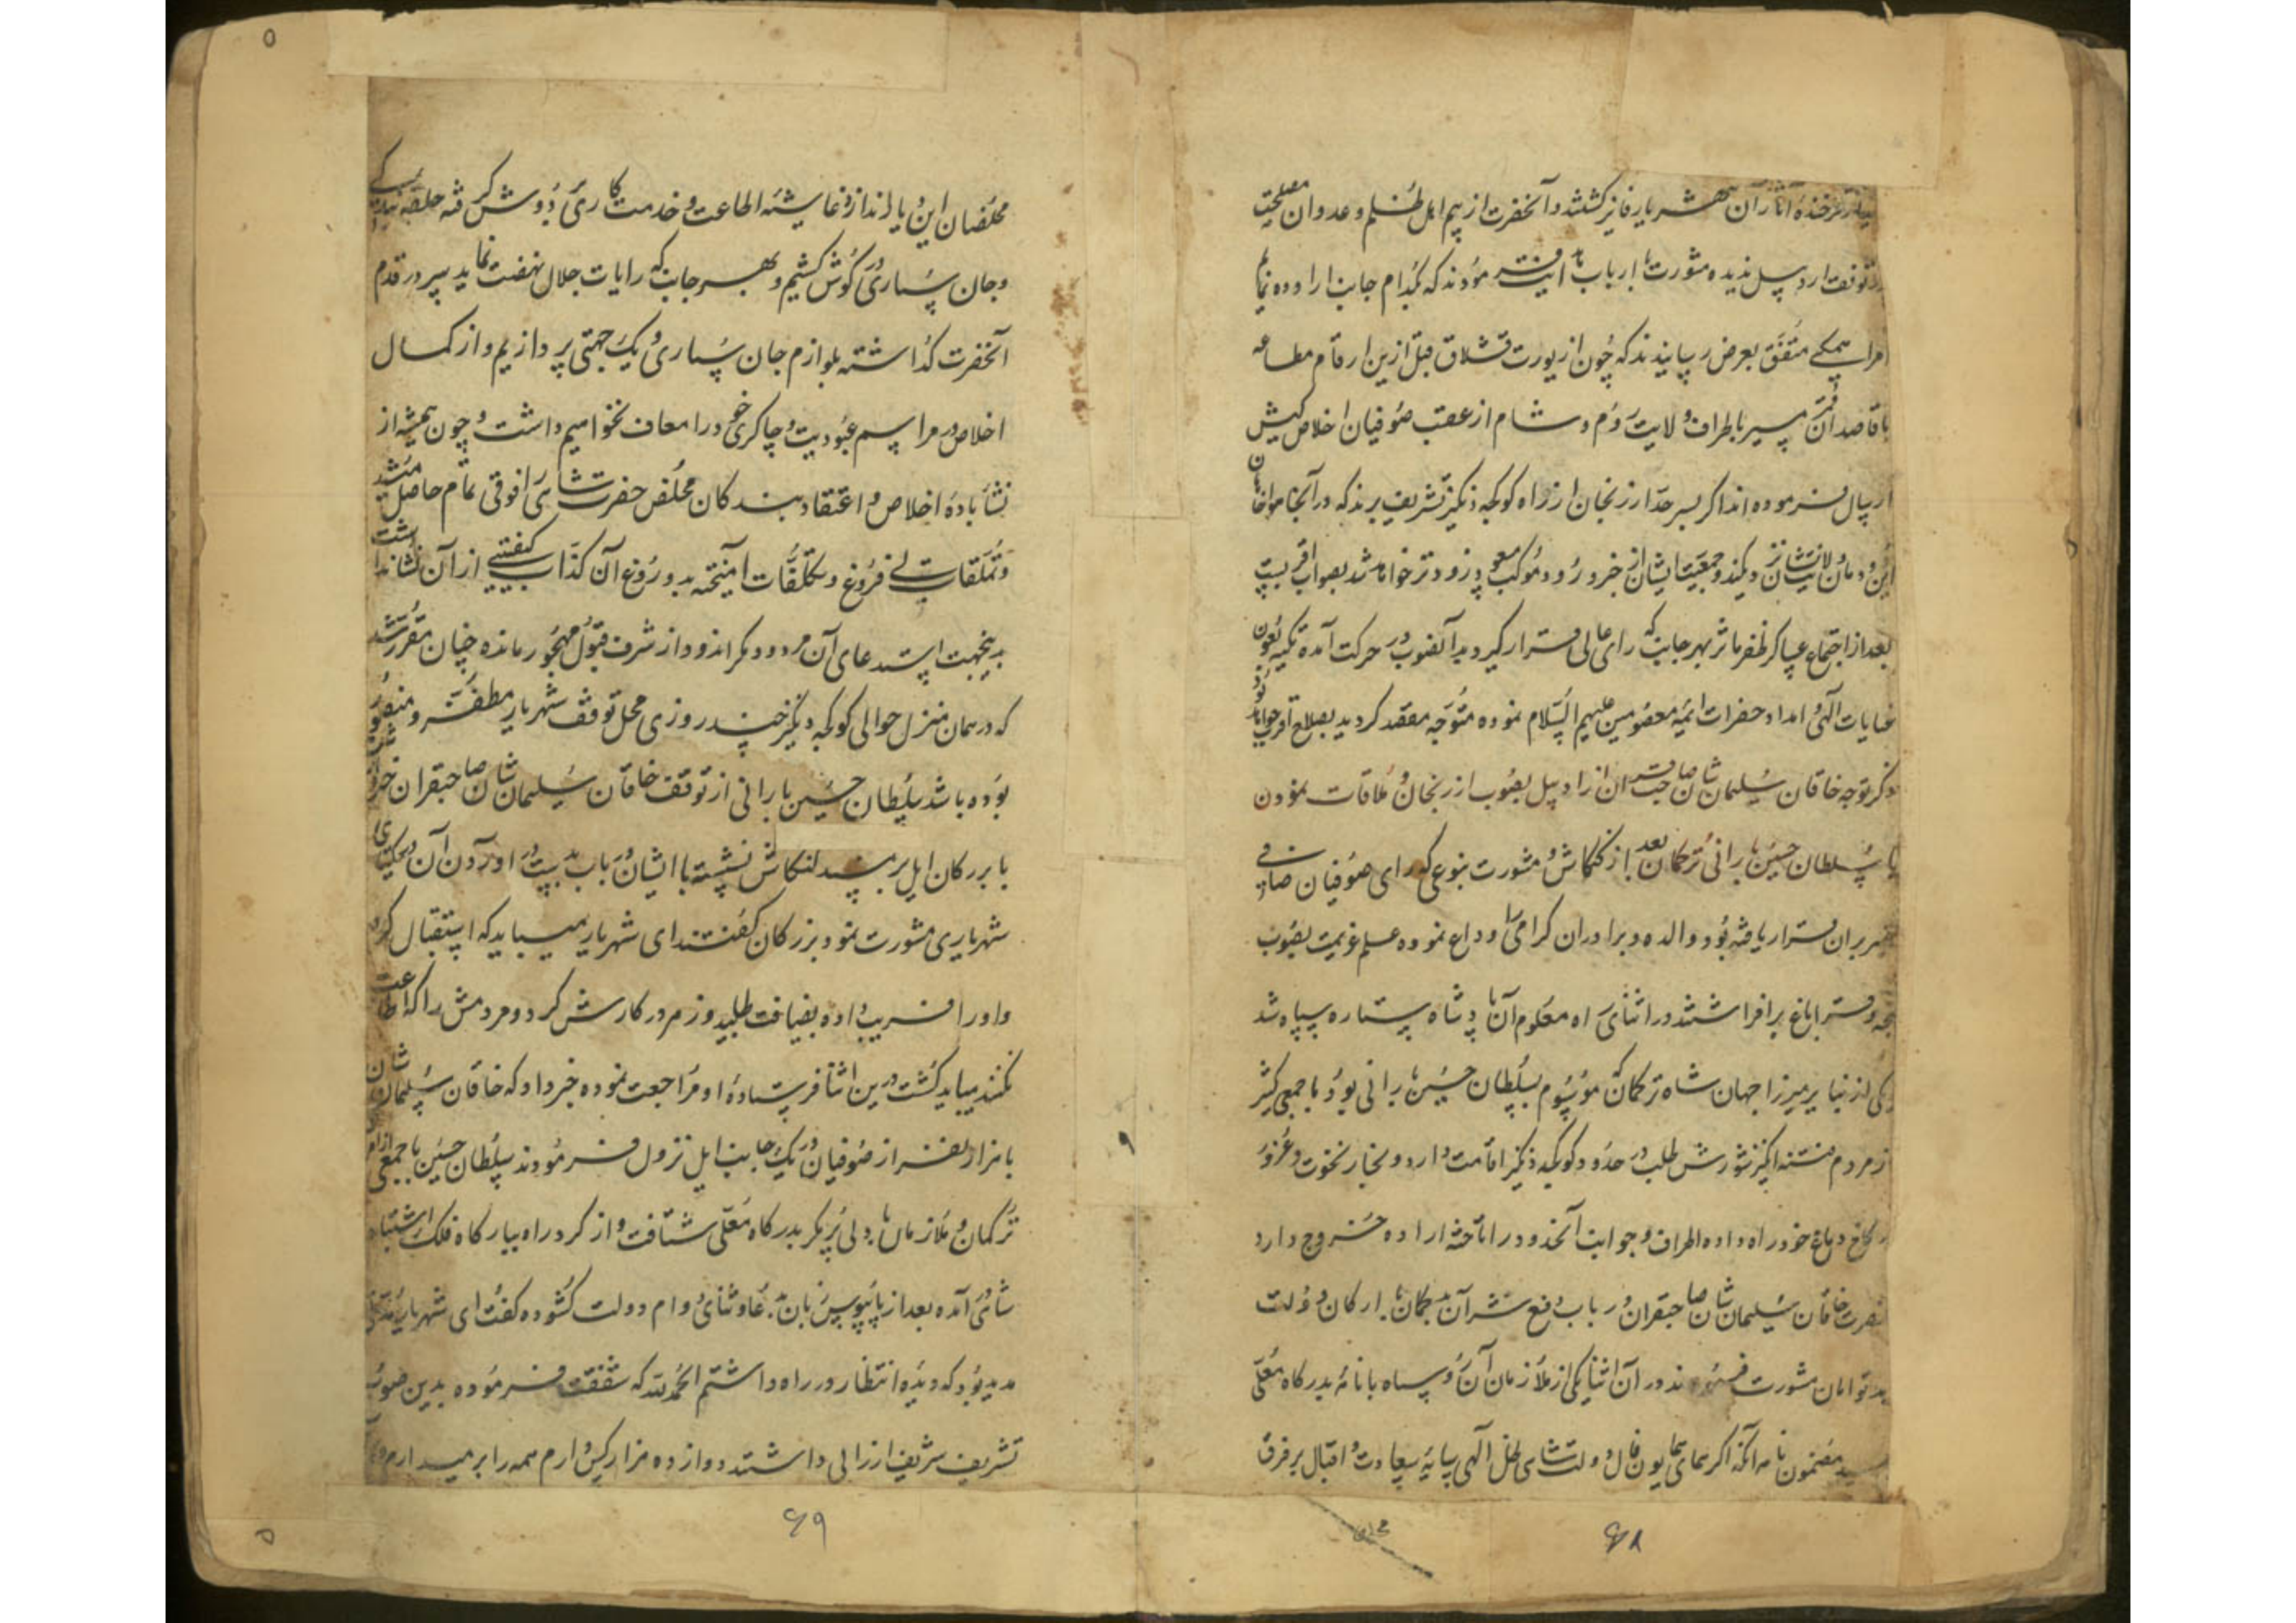 فرخنده آثار آن شهریار فایز گشتند و آنحضرت از بیم اهل ظلم و عدوان مصلحت
در توقف اردبیل ندیده مشورت با ارباب فرمودند که بکدام جانب اراده نمایم
امرا همکی متفق بعرض رسانیدند که چون از یورت قشلاق قبل ازین ارقام مطاعه
با قاصدان سیر باطراف ولایت روم و شام از عقب صوفیان اخلاص کیش
ارسال فرموده اند اکر بسر حد ارزنجان از راه کوکجه دنکیز تشریف برند که در آنجا
این دودمان و جمعیت ایشان از خبر ورود موکب زودتر خواهد شد بصواب اقربست
بعد از اجتماع عساکر ظفر ماثر بهر جانب که رای عالی قرار کیرد بدانصوب در حرکت آمده تکیه بعون
عنایات الهی و امداد حضرات ائمه معصومین علیهم السلام نموده متوجه مقصد کردید بصلاح اقرب خواهد بود
ذکر توجه خاقان سلیمان شان صاحبقران از اردبیل بصوب ارزنجان و ملاقات نمودن
با سلطان حسین بارانی ترکمان بعد از کنکاش و مشورت بنوعی که رای صوفیان صافی
ضمیر بران قرار یافته بود والده و برادران کرامی را وداع نموده علم عزیمت بصوب
قراباغ برافراشتند در اثنای راه معلوم آن پادشاه ستاره سپاه شد
یکی از نبایر میرزا جهان شاه ترکمان که موسوم بسلطان حسین بارانی بود با جمعی کثیر
از مردم فتنه انکیز شورش طلب در حدود کوکجه دنکیز اقامت دارد و بخار نخوت و غرور
بکاخ دماغ خود راه داده اطراف و جوانب آنحدود را تاخته اراده خروج دارد
حضرت خاقان سلیمان شان صاحبقران در باب دفع شر آن با ارکان دولت
توامان مشورت فرمودند در آن اثنا یکی از ملازمان آن رو سیاه با نامه بدرکاه معلی
رسید مضمون نامه آنکه اکر همای همایون فال دولت شاهی ظل الهی سایه سعادت و اقبال بر فرق
مخلصان این دیار اندازد غاشیه اطاعت و خدمت کاری بر دوش کرفته حلقه بندکی
و جان سپاری در کوش کشیم و بهر جانب که رایات جلال نهضت نماید سر در قدم
آنحضرت کذاشته بلوازم جان سپاری و یک جهتی پردازیم و از کمال
اخلاص در مراسم عبودیت و چاکری خود را معاف نخواهیم داشت و چون همیشه از
نشأ باده اخلاص و اعتقاد بندکان مخلص حضرت شاهی را ذوقی تمام حاصل میشد
و تملقات بی فروغ و تکلفات آمیخته بدروغ آن کذاب کیفیتی از آن نشا نداشت
بدینجهت استدعای آن مردود مکرر اندود از شرف قبول مهجور مانده چنان مقرر شد
که در همان منزل حوالی کوکجه دنکیز چند روزی محل توقف شهریار مظفر و منصور
بوده باشد سلطان حسین بارانی از توقف خاقان سلیمان شان صاحبقران خبر
با بزرکان ایل بر مسند کنکاش نشسته با ایشان در باب بدست در آوردن آن
شهریاری مشورت نمود بزرکان کفتند ای شهریار میباید که استقبال کرد
و او را فریب داده بضیافت طلبید و زهر در کارش کرد و مردمش را که اطاعت
نکنند میباید کشت درین اثنا فرستاده او مراجعت نموده خبر داد که خاقان سلیمان شان
با هزار نفر از صوفیان در یک جانب ایل نزول فرمودند سلطان حسین با جمعی از امرا
ترکمان و ملازمان با دلی پر مکر بدرکاه معلی شتافت و از کرد راه ببارکاه فلک اشتباه
شاهی آمده بعد از پایبوس زبان بدعا و ثنای دوام دولت کشوده کفت ای شهریار مدتی
مدید بود که دیده انتظار در راه داشتم الحمد لله که شفقت فرموده بدین صوب
تشریف شریف ارزانی داشتند دوازده هزار کس دارم همه را بر میدارم
۶۸
۶۹